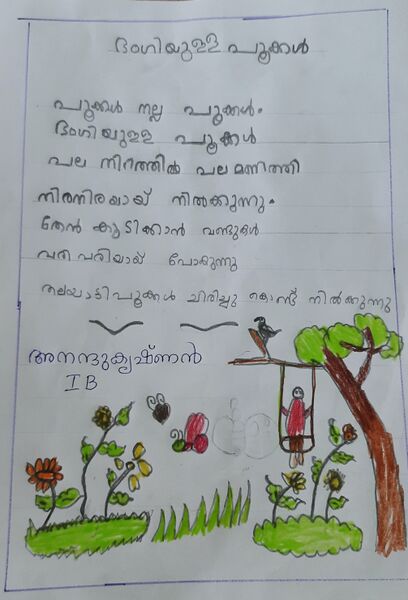 ഭംഗിയുള്ള പൂക്കൾ
പൂക്കൾ നല്ല പൂക്കൾ.
ഭംഗിയുള്ള പൂക്കൾ
പല നിറത്തിൽ പല മണത്തി
നിരനിരയായ് നിൽക്കുന്നു.
തേൻ കുടിക്കാൻ വണ്ടുകൾ
വരി വരിയായ് പോകുന്നു
തലയാട്ടി പൂക്കൾ ചിരിച്ചു കൊണ്ട് നിൽക്കുന്നു
അനന്ദുകൃഷ്ണൻ
I B